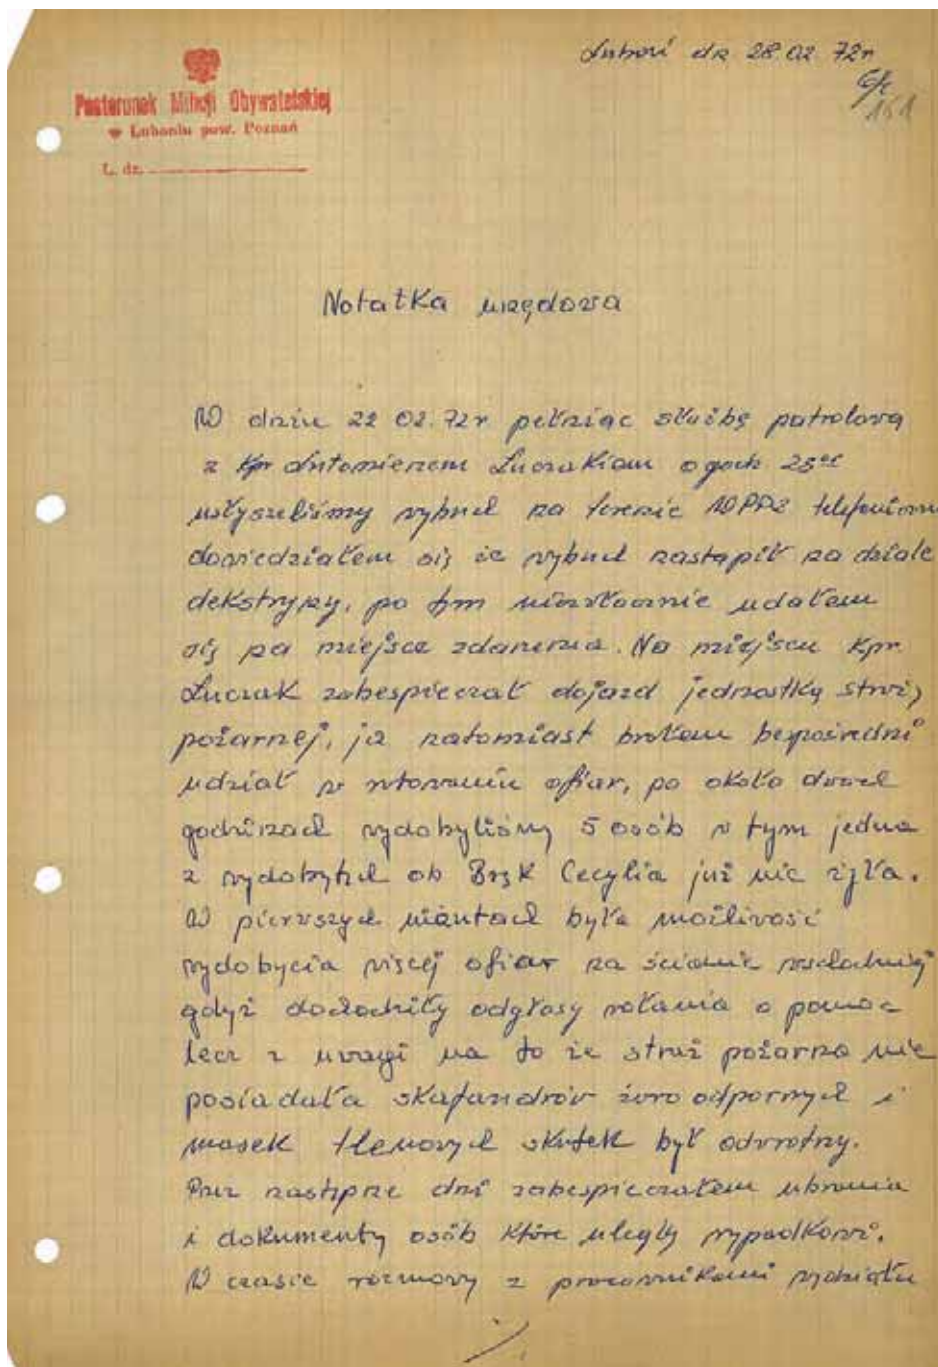 Luboń dn 28.02.72r
151
Posterunek Milicji Obywatelskiej
w Luboniu pow. Poznań
L. dz.
Notatka urzędowa
W dniu 22 02.72r pełniąc służbę patrolową
z kpr Antonienem Luczakiem o godz
usłyszeliśmy wybuch na terenie WPPZ telefonicznie
dowiedziałem się że wybuch nastąpił na dziale
dekstryny, po tym niezwłocznie udałem
się na miejsce zdarzenia. Na miejscu kpr
Luczak zabespieczał dojazd jednostką straży
pożarnej, ja natomiast brałem bezpośredni
udział w ratowaniu ofiar, po około dwuch
godzinach wydobyliśmy 5 osób w tym jedna
z wydobytych ob Bzyk Cecylia już nie żyła.
W pierwszych minutach była możliwość
wydobycia więcej ofiar na ścianie wschodniej
gdyż dochodziły odgłosy wołania o pomoc
lecz z uwagi na to że straż pożarna nie
posiadała skafandrów żaroodpornych i
masek tlenowych skutek był odwrotny.
Przez następne dni zabespieczałem ubrania
i dokumenty osób które uległy wypadkowi.
W czasie rozmowy z pracownikami wydziału